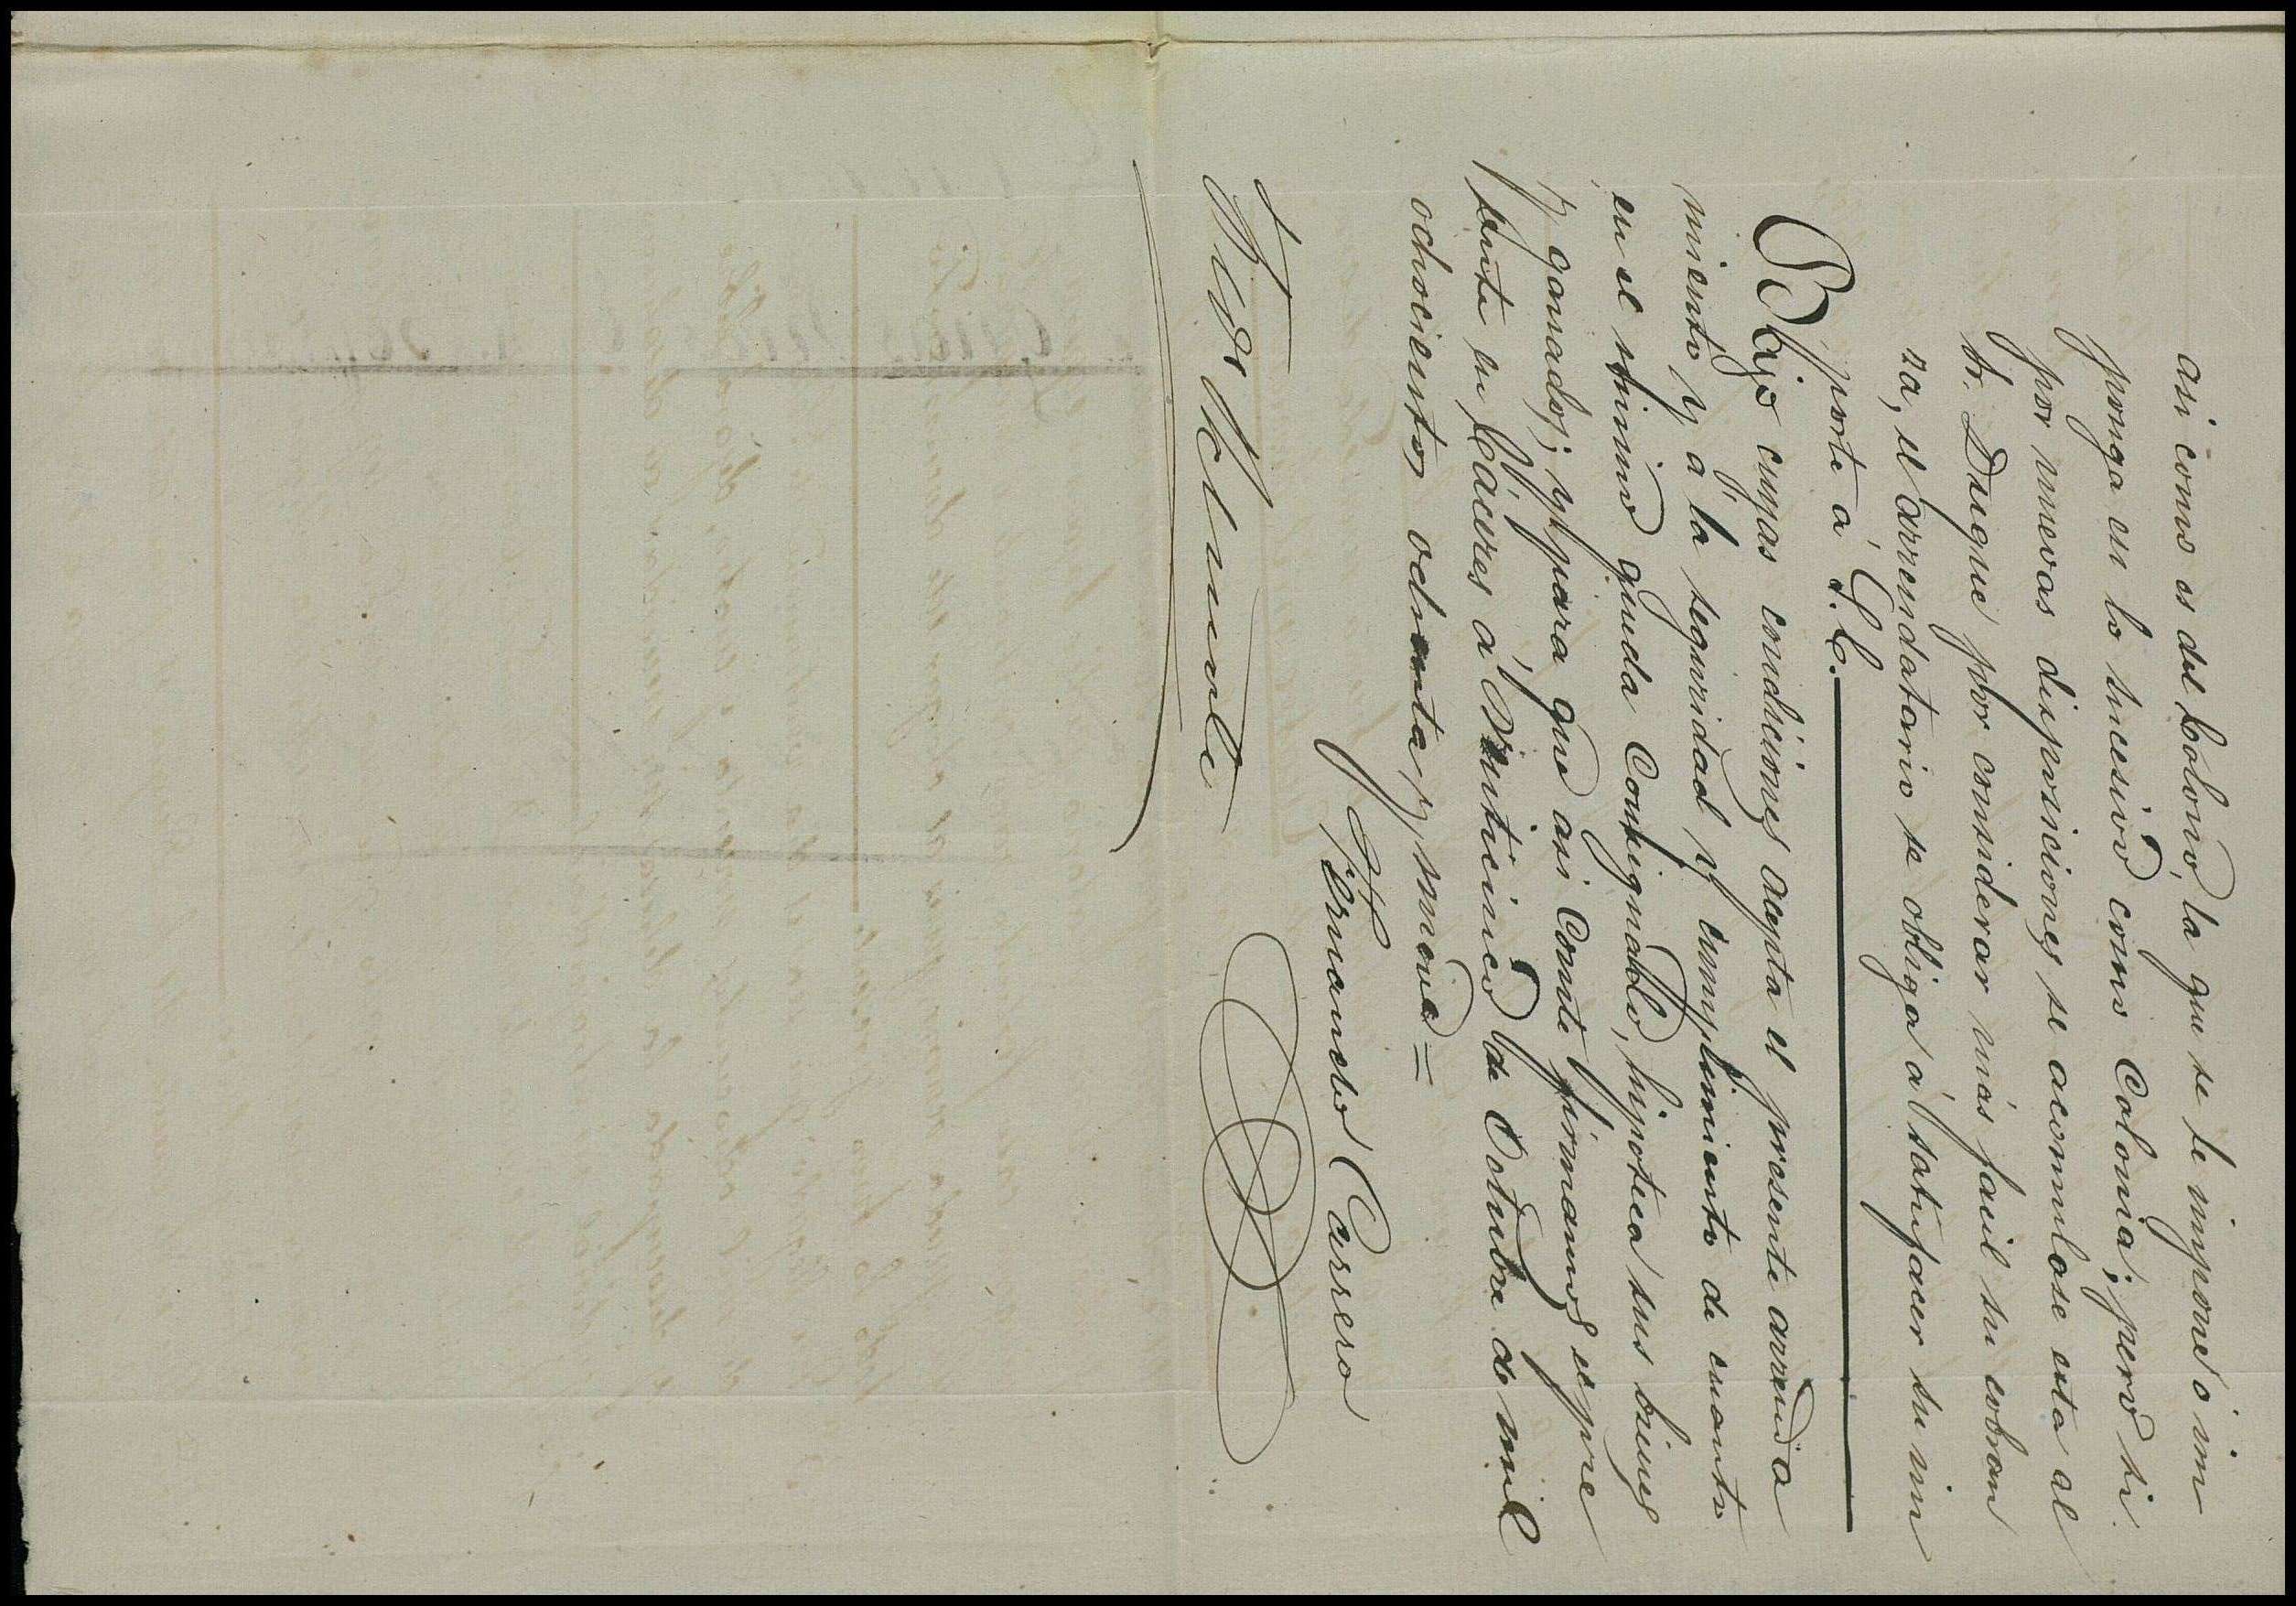 asi como es del Colono, la que se le impone ó im
ponga en lo sucesivo como Colonia; pero si
por nuevas disposiciones se acomulase esta al
Sr. Duque por considerar más facil su cobran
za, el arrendatario se obliga á satisfacer su im
porte á S. E.
Bajo cuyas condiciones acepta el presente arrenda
miento y á la seguridad y cumplimiento de cuanto
en el mismo queda consignado, hipoteca sus bienes
y ganados; y para que asi conste firmamos el pre
sente en Cáceres á Veinticinco de Octubre de mil
ochocientos ochenta y nueve =
Fernando Carrero